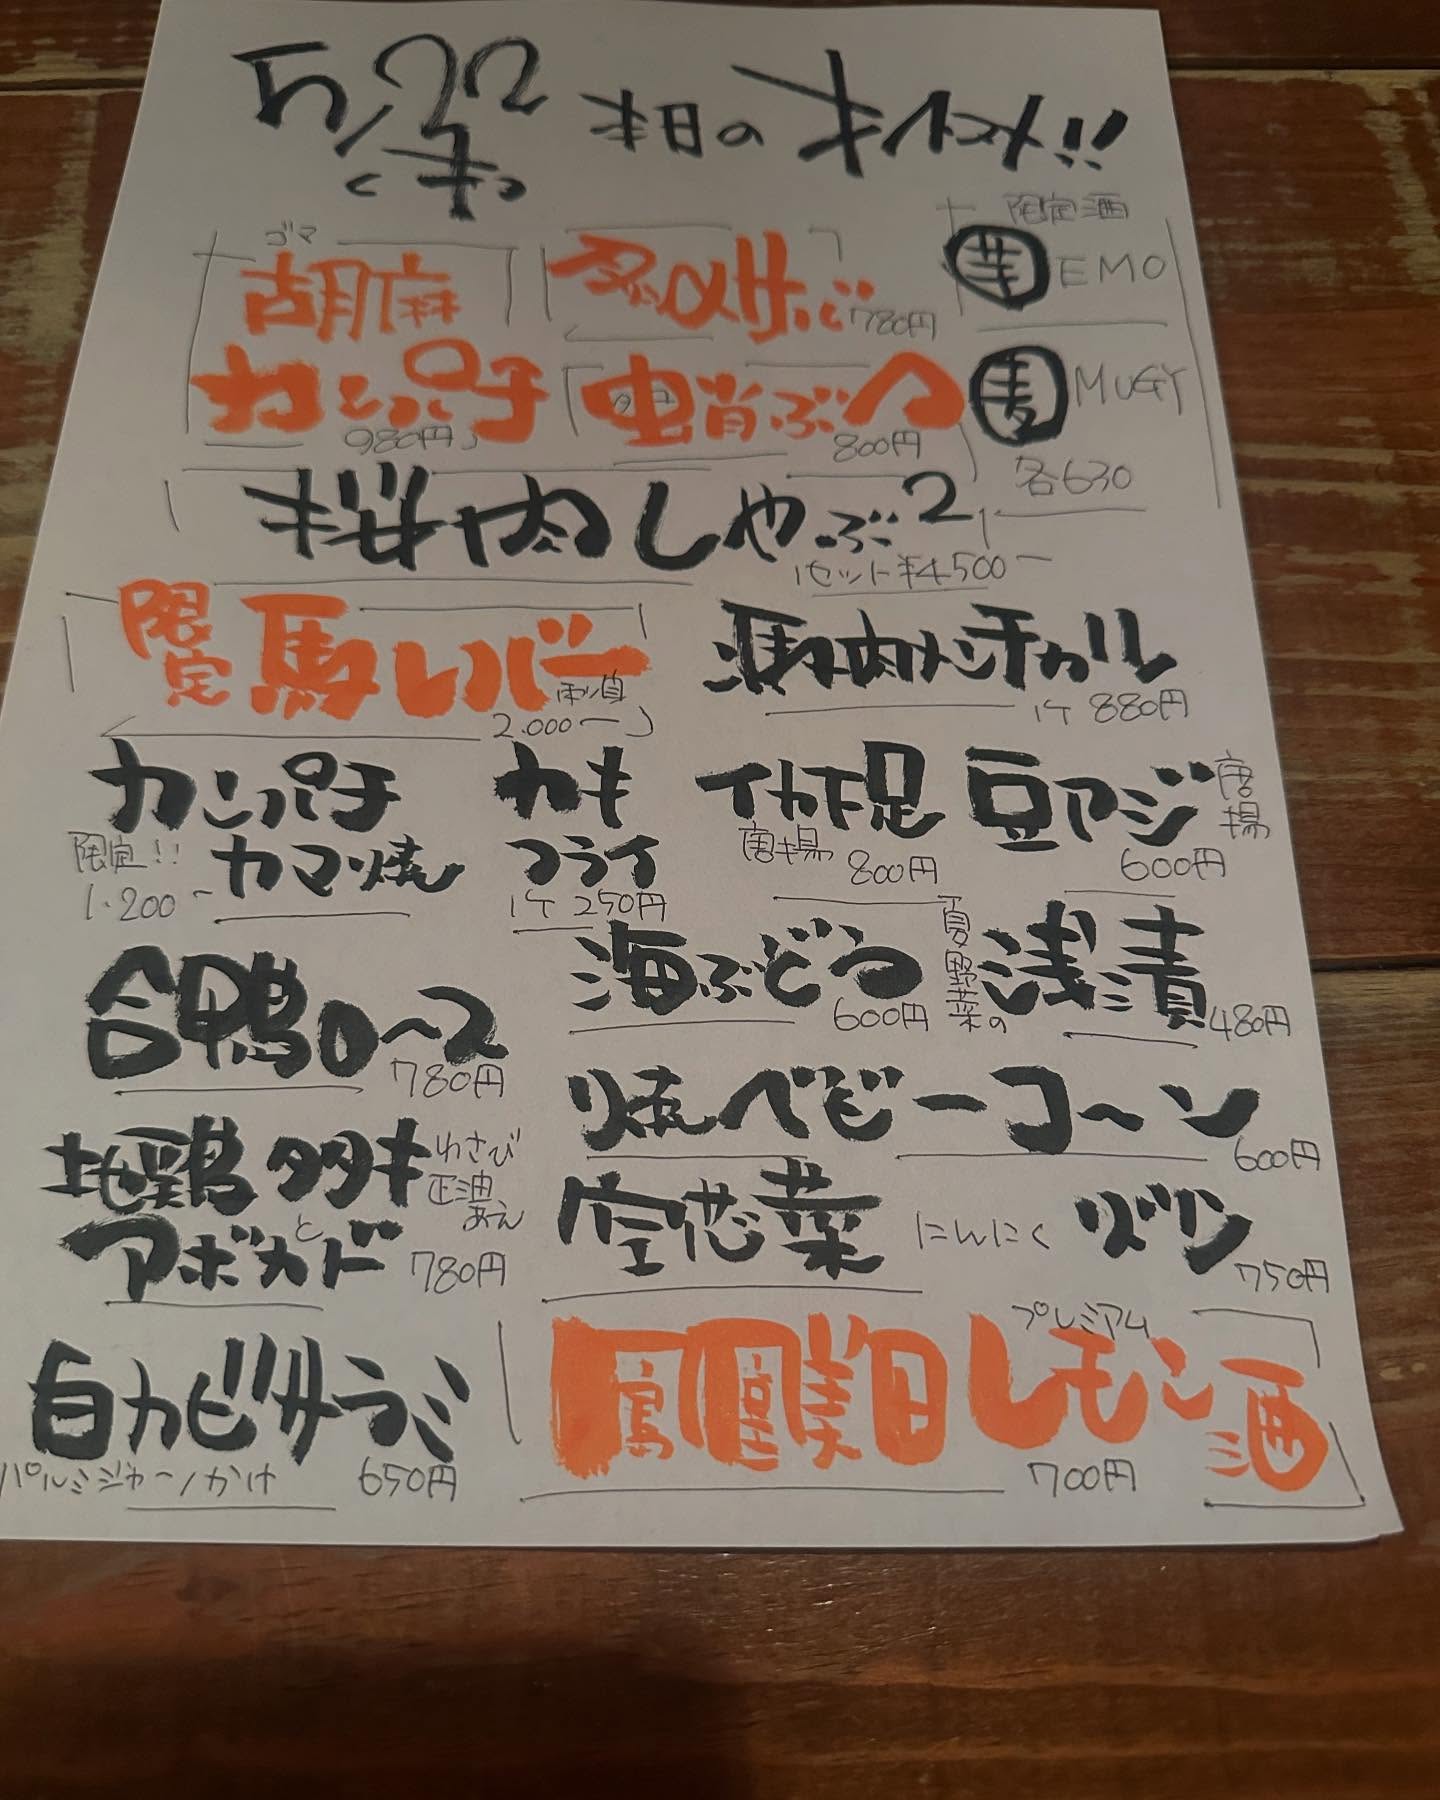 本日のオススメ!!
限定酒
芋 EMO
麦 MUGY
各630
ゴマ
胡麻
カンパチ
980円
780円
ぶつ
800円
桜肉しゃぶ2
1セット¥4,500ー
限定
馬レバー
2,000ー
馬肉メンチカツ
1ケ 880円
カンパチ
カマ焼
限定!!
1,200ー
かき
フライ
1ケ 250円
イカ下足
唐揚
800円
豆アジ
唐揚
600円
合鴨ロ〜ス
780円
海ぶどう
600円
夏野菜の
浅漬
480円
焼ベビーコーン
600円
地鶏タタキ
と
アボカド
わさび
正油
あえ
780円
空芯菜
にんにく
750円
白カビサラミ
パルミジャーノかけ
650円
鳳凰美田
プレミアム
レモン酒
700円